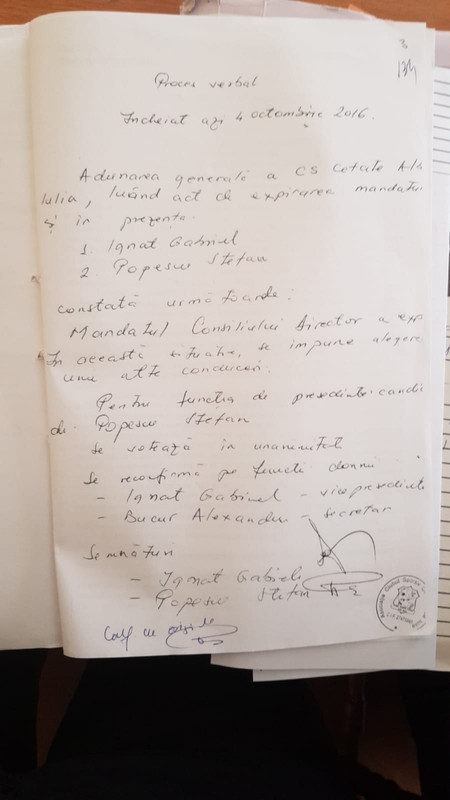 3
134
Proces verbal
Încheiat azi 4 octombrie 2016.
Adunarea generală a CS Cetate Alb
Iulia, luând act de expirarea mandatu
și în prezența:
1. Ignat Gabriel
2. Popescu Ștefan
constată următoarele:
Mandatul Consiliului Director a exp
În această situație, se impune alegere
unei alte conduceri.
Pentru funcția de președinte candi
de Popescu Ștefan
se votează în unanimitate
Se reconfirmă pe funcții domnii
- Ignat Gabriel - vicepreședinte
- Bucur Alexandru - secretar
Semnături
- Ignat Gabriel
- Popescu Ștefan
Conf. cu